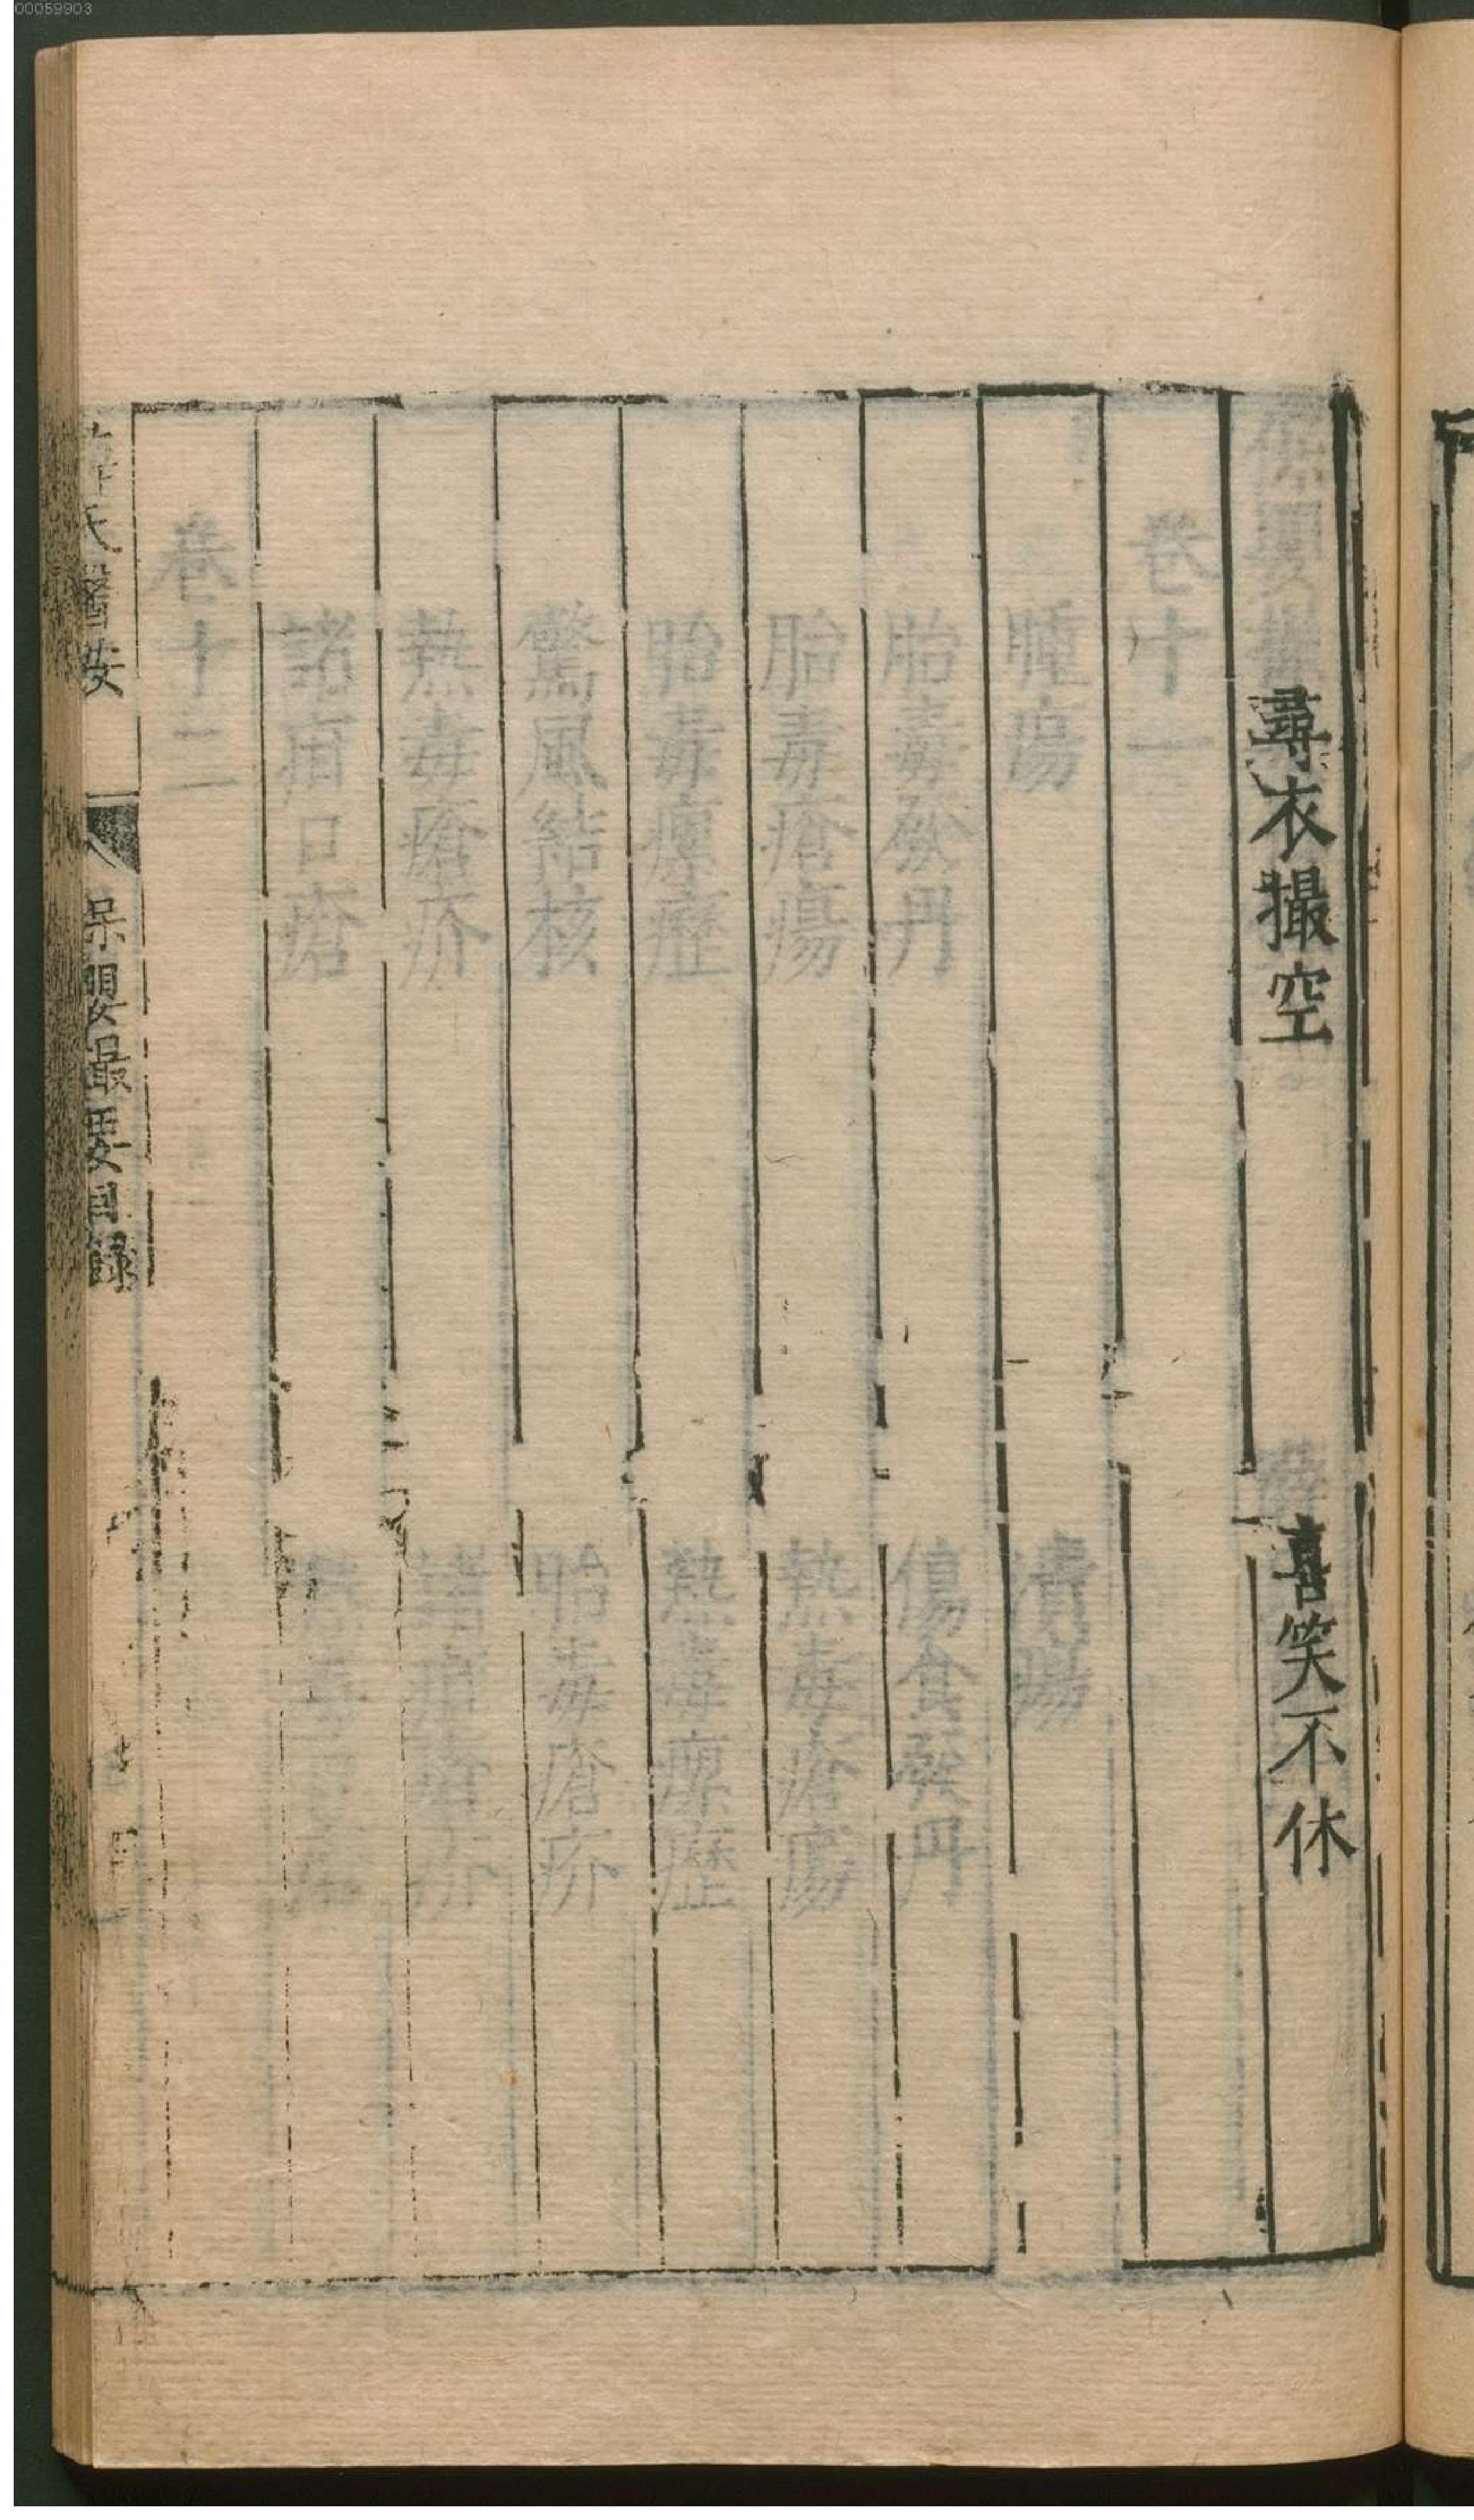 00059903
尋衣撮空 喜笑不休
卷十一
腫瘍 潰瘍
胎毒發丹 傷食發丹
胎毒瘡瘍 熱毒瘡瘍
胎毒瘰癧 熱毒瘰癧
驚風結核 胎毒瘡疥
熱毒瘡疥 諸疳瘡疥
諸疳口瘡
卷十二
薛氏醫按 保嬰撮要目錄